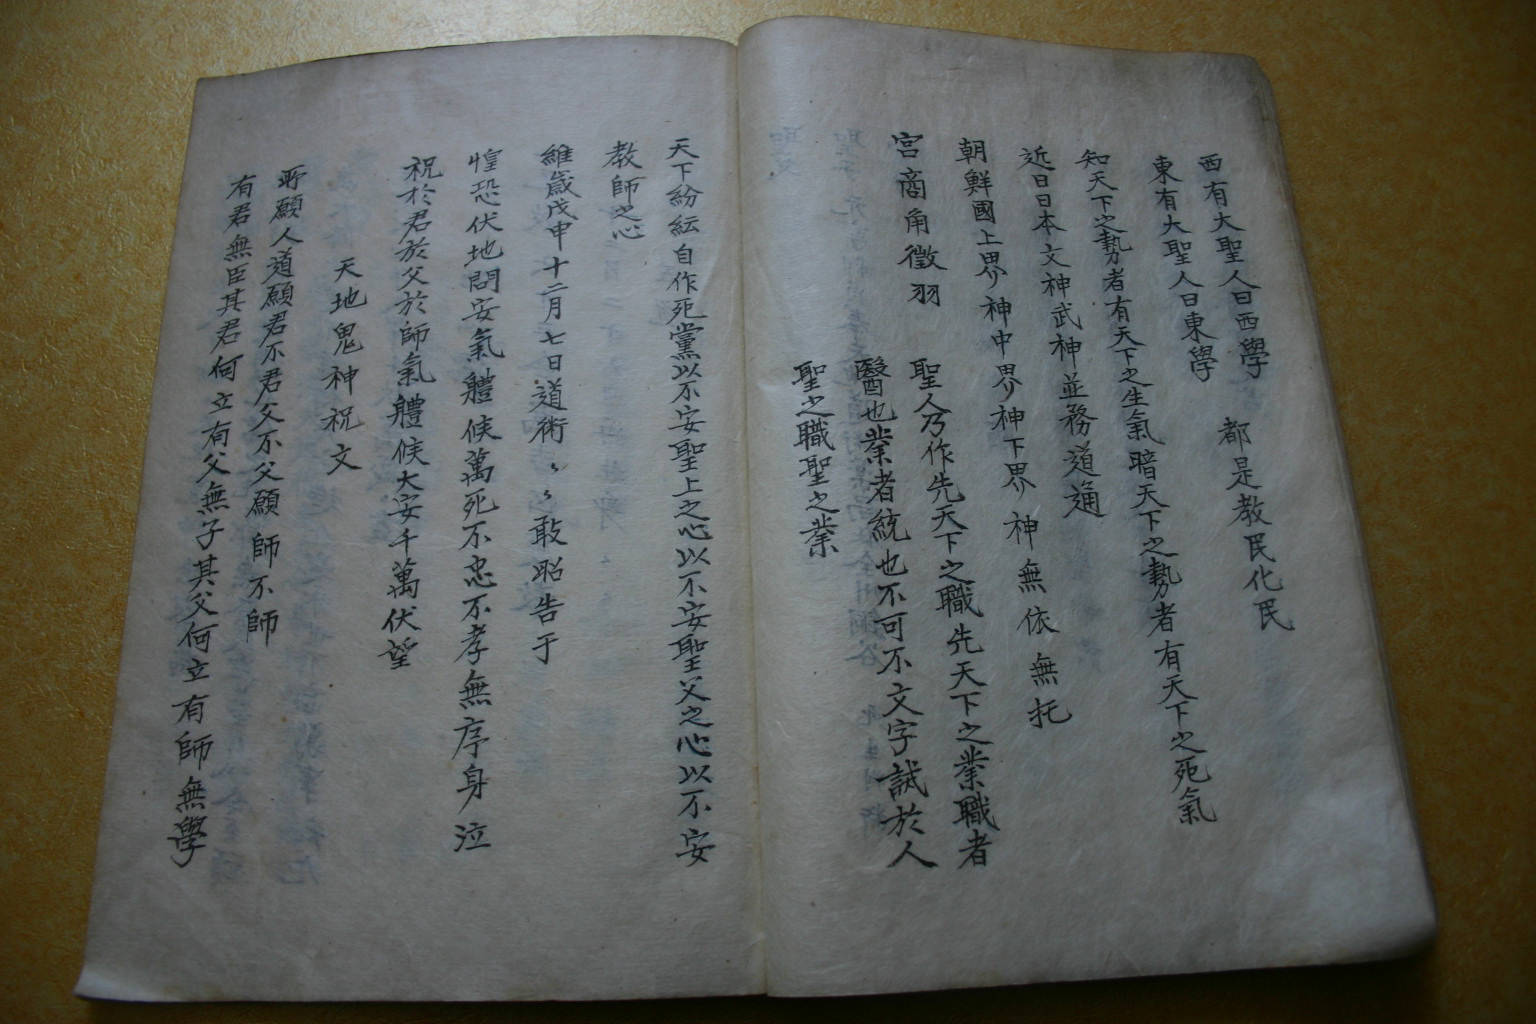 西有大聖人曰西學
東有大聖人曰東學 都是教民化民
知天下之勢者有天下之生氣暗天下之勢者有天下之死氣
近日日本文神武神並務道通
朝鮮國上界神中界神下界神無依無托
宮商角徵羽 聖人乃作先天下之職先天下之業職者
醫也業者統也不可不文字誠於人
聖之職聖之業
天下紛紜自作死黨以不安聖上之心以不安聖父之心以不安
教師之心
維歲戊申十二月七日道術〻〻敢昭告于
惶恐伏地問安氣體候萬死不忠不孝無序身泣
祝於君於父於師氣體候大安千萬伏望
天地鬼神祝文
所願人道願君不君父不父願師不師
有君無臣其君何立有父無子其父何立有師無學